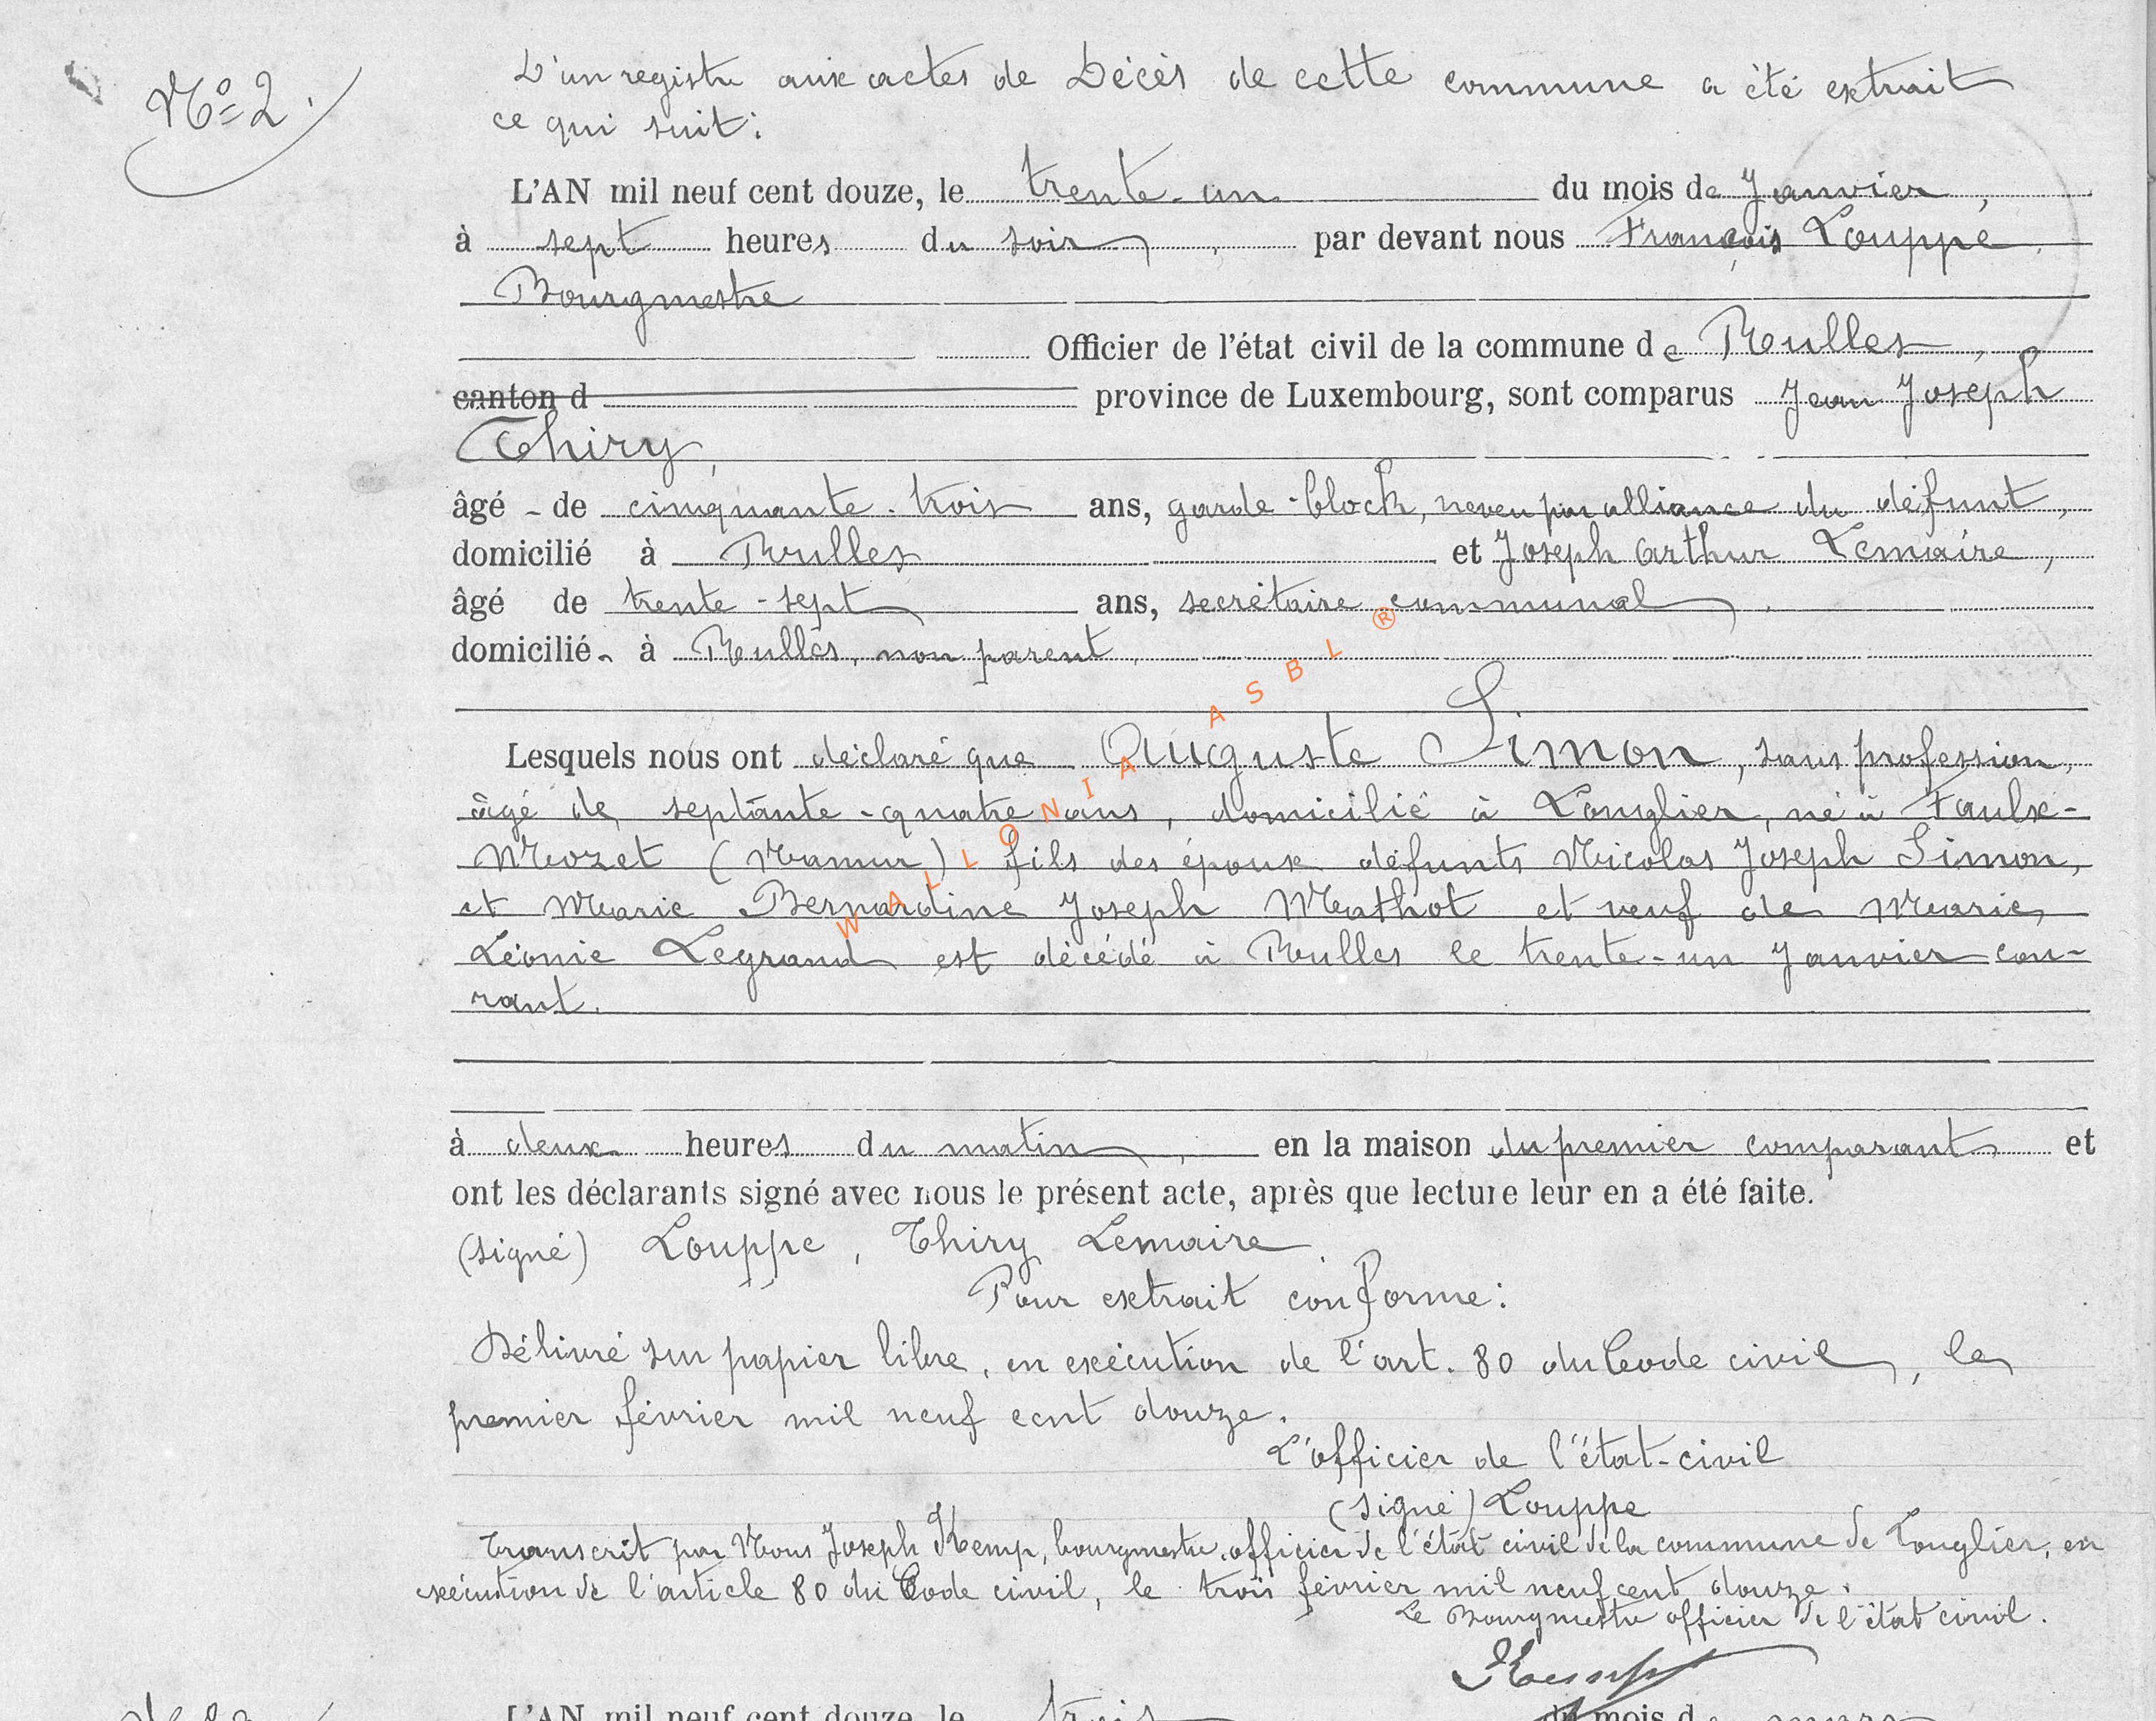 N° 2.
D'un registre aux actes de Décès de cette commune a été extrait
ce qui suit:
L'AN mil neuf cent douze, le trente-un du mois de Janvier,
à sept heures du soir, par devant nous François Louppe,
Bourgmestre
Officier de l'état civil de la commune de Rulles,
canton d province de Luxembourg, sont comparus Jean Joseph
Thiry,
âgé de cinquante-trois ans, garde-block, neveu par alliance du défunt,
domicilié à Rulles et Joseph Arthur Lemaire,
âgé de trente-sept ans, secrétaire communal,
domicilié à Rulles, non parent,
Lesquels nous ont déclaré que Auguste Simon, sans profession,
âgé de septante-quatre ans, domicilié à Longlier, né à Faulx-
Mozet (Namur) fils des époux défunts Nicolas Joseph Simon,
et Marie Bernardine Joseph Mathot et veuf de Marie
Léonie Legrand est décédé à Rulles le trente-un Janvier cou-
rant.
à deux heures du matin, en la maison du premier comparant et
ont les déclarants signé avec nous le présent acte, après que lecture leur en a été faite.
(signé) Louppe, Thiry Lemaire.
Pour extrait conforme:
Délivré sur papier libre, en exécution de l'art. 80 du Code civil, le
premier février mil neuf cent douze.
L'officier de l'état-civil
(signé) Louppe
Transcrit par Nous Joseph Kemp, bourgmestre, officier de l'état civil de la commune de Longlier, en
exécution de l'article 80 du Code civil, le trois février mil neuf cent douze.
Le Bourgmestre officier de l'état civil.
Kemp
L'AN mil neuf cent douze, le trois du mois de mars
WALLONIA ASBL ®